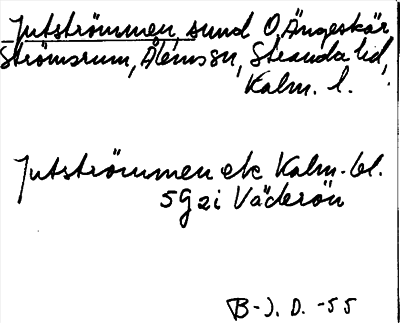 Jutströmmen, sund O, Ängeskär,
Strömsrum, Ålems sn, Stranda hd,
Kalm. l.
Jutströmmen ek Kalm. bl.
5g2i Väderön
B-J. D. -55